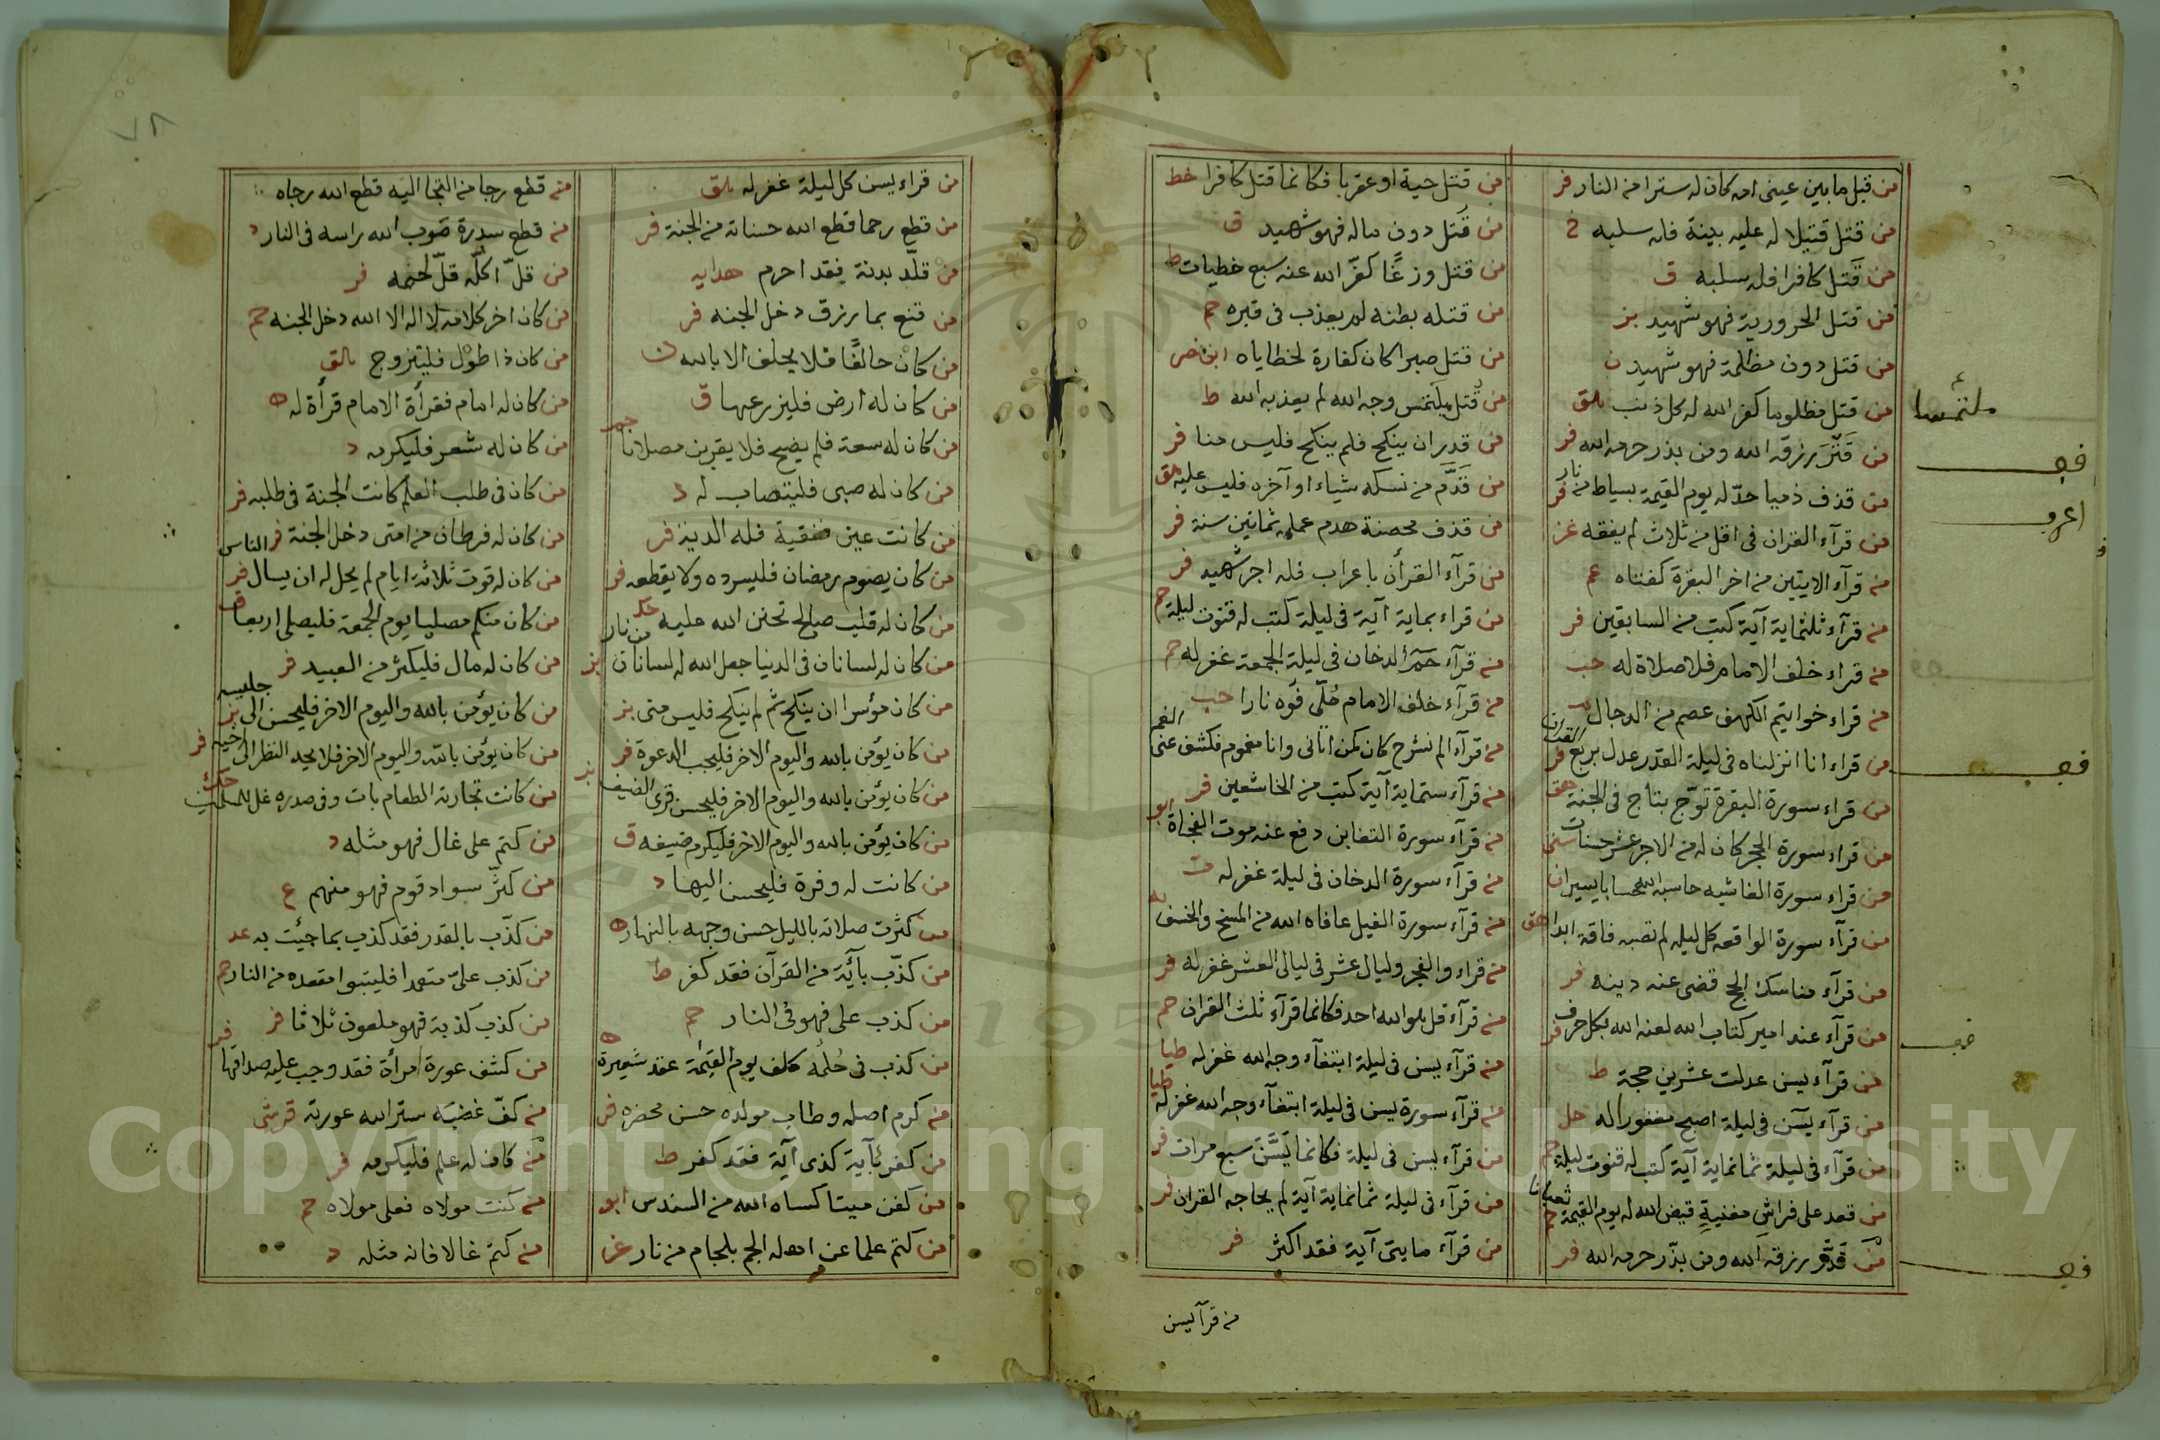 من قبل ما بين عينى امه كان له سترا من النار فر
من قتل قتيلا له عليه بينة فله سلبه خ
من قتل كافرا فله سلبه ق
من قتل الحرورية فهو شهيد بز
من قتل دون مظلمة فهو شهيد ن
من قتل مظلوما كفر الله له كل ذنب
من قَتَّرَ رزقه الله ومن بذر حرمه الله فر
من قذف ذميا حدّ له يوم القيمة بسياط من نار فر
من قرآء القران فى اقل من ثلاث لم يفقه عز
من قرآء الايتين من اخر البقرة كفتاه عم
من قرآء ثلثماية آية كتب من السابقين فر
من قراء خلف الامام فلا صلاة له حب
من قراء خواتيم الكهف عصم من الدجال
من قراء انا انزلناه فى ليلة القدر عدل بربع القران فر
من قراء سورة البقرة توّج بتاج فى الجنة هق
من قراء سورة الحجر كان له من الاجر عشر حسنات
من قراء سورة الغاشيه حاسبه الله حسابا يسيرا
من قرآء سورة الواقعه كل ليله لم تصبه فاقة ابدا هق
من قرآء مناسك الحج قضى عنه دينه فر
من قرآء عند امير كتاب الله لعنه الله بكل حرف فر
من قرآء يسن عدلت عشرين حجة ط
من قرآء يسن فى ليلة اصبح مغفورا له حل
من قرآء فى ليلة ثمانماية آية كتب له قنوت ليلة حم
من قعد على فراش مغنية قيض الله له يوم القيمة ثعبانا حم
من قَدَّر رزقه الله ومن بذّر حرمه الله فر
ملتمسا
اعرب
من قتل حية او عقربا فكانما قتل كافرا خط
من قُتل دون ماله فهو شهيد ق
من قتل وزغًا كفّر الله عنه سبع خطيات ط
من قتله بطنه لم يعذب فى قبره حم
من قتل صبرا كان كفارة لخطاياه
من قُتل يلتمس وجه الله لم يعذبه الله ط
من قدر ان ينكح فلم ينكح فليس منا فر
من قَدَّم من نسكه شياء او آخره فليس عليه هق
من قذف محصنة هدم عمله ثمانين سنة فر
من قرآء القرأن باعراب فله اجر شهيد فر
من قراء بماية آية فى ليلة كتب له قنوت ليلة حم
من قرآء حم الدخان فى ليلة الجمعة غفر له حم
من قرآء خلف الامام مُلّى فوه نارا حب
من قرآء الم نشرح كان كمن اتانى وانا مغموم فكشف عنى الغم
من قرآء ستماية آية كتب من الخاشعين فر
من قرآء سورة التغابن دفع عنه موت الفجاة ابو
من قرآء سورة الدخان فى ليلة غفر له ت
من قرآء سورة الفيل عافاه الله من المسخ والخسف
من قراء والفجر وليال عشر فى ليالى العشر غفر له فر
من قرآء قل هو الله احد فكانما قرآء ثلث القران حم
من قرآء يسن فى ليلة ابتغآء وجه الله غفر له طيا
من قرآء سورة يسن فى ليلة ابتغآء وجه الله غفر له طيا
من قرآء يسن فى ليلة فكانما يَسَّن سبع مرات فر
من قرآء فى ليلة ثمانماية آية لم يحاجه القران فر
من قرآء مايتى آية فقد اكثر فر
من قرآ يسن
٧٨
من قراء يسن كل ليلة غفر له
من قطع رحما قطع الله حسناته من الجنة فر
من قلّد بدنة فقد احرم هدايه
من قنع بما رزق دخل الجنه فر
من كان حالفًا فلا يحلف الا بالله ن
من كان له ارض فليزرعها ق
من كان له سعة فلم يضح فلا يقربن مصلانا
من كان له صبى فليتصاب له
من كانت عين فله الدية فر
من كان يصوم رمضان فليسرده ولا يقطعه فر
من كان له قلب صالح تحنن الله عليه حك
من كان له لسانان فى الدنيا جعل الله له لسانان من نار بز
من كان مؤسرا ان ينكح ثم لم ينكح فليس منى بز
من كان يؤمن بالله واليوم الاخر فليجب الدعوة فر
من كان يؤمن بالله واليوم الاخر فليحسن قرى الضيف بز
من كان يؤمن بالله واليوم الاخر فليكرم ضيفه ق
من كانت له وفرة فليحسن اليها د
من كثرت صلاته بالليل حسن وجهه بالنهار ه
من كذّب بآية من القرآن فقد كفر ط
من كذب على فهو فى النار حم
من كذب فى حُلُمه كلف يوم القيمة عقد شعيرة
من كرم اصله وطاب مولده حسن محضره فر
من كفر بآية كذى آية فقد كفر ط
من كفن ميتا كساه الله من السندس ابو
من كتم علما عن اهله الجم بلجام من نار عن
من قطع رجا من التجا اليه قطع الله رجاه
من قطع سدرة صَوب الله راسه فى النار د
من قلّ اكله قلّ لحمه فر
من كان اخر كلامه لا اله الا الله دخل الجنه حم
من كان ذا طول فليتزوج
من كان له امام فقرأة الامام قرأة له ه
من كان له شعر فليكرمه د
من كان فى طلب العلم كانت الجنة فى طلبه فر
من كان له فرطان من امتى دخل الجنة فر
من كان له قوت ثلاثة ايام لم يحل له ان يسال الناس فر
من كان منكم مصليا يوم الجمعة فليصلى اربعا ق
من كان له مال فليكثر من العبيد فر
من كان يؤمن بالله واليوم الاخر فليحسن الى جليسه بز
من كان يؤمن بالله واليوم الاخر فلا يحد النظر الى اخيه فر
من كانت تجارته الطعام بات وفى صدره غل للمسلمين حك
من كتم على غال فهو مثله د
من كثّر سواد قوم فهو منهم ع
من كذّب بالقدر فقد كذب بما جئت به عد
من كذب علىّ متعمدا فليتبوا مقعده من النار حم
من كذب كذبة فهو ملعون ثلاثا فر
من كشف عورة امرأة فقد وجب عليه صداقها
من كفّ غضبَه ستر الله عورته قرشى
من كان له علم فليكرمه فر
من كنت مولاه فعلى مولاه ح
من كتم غالا فانه مثله د
Copyright © King Saud University